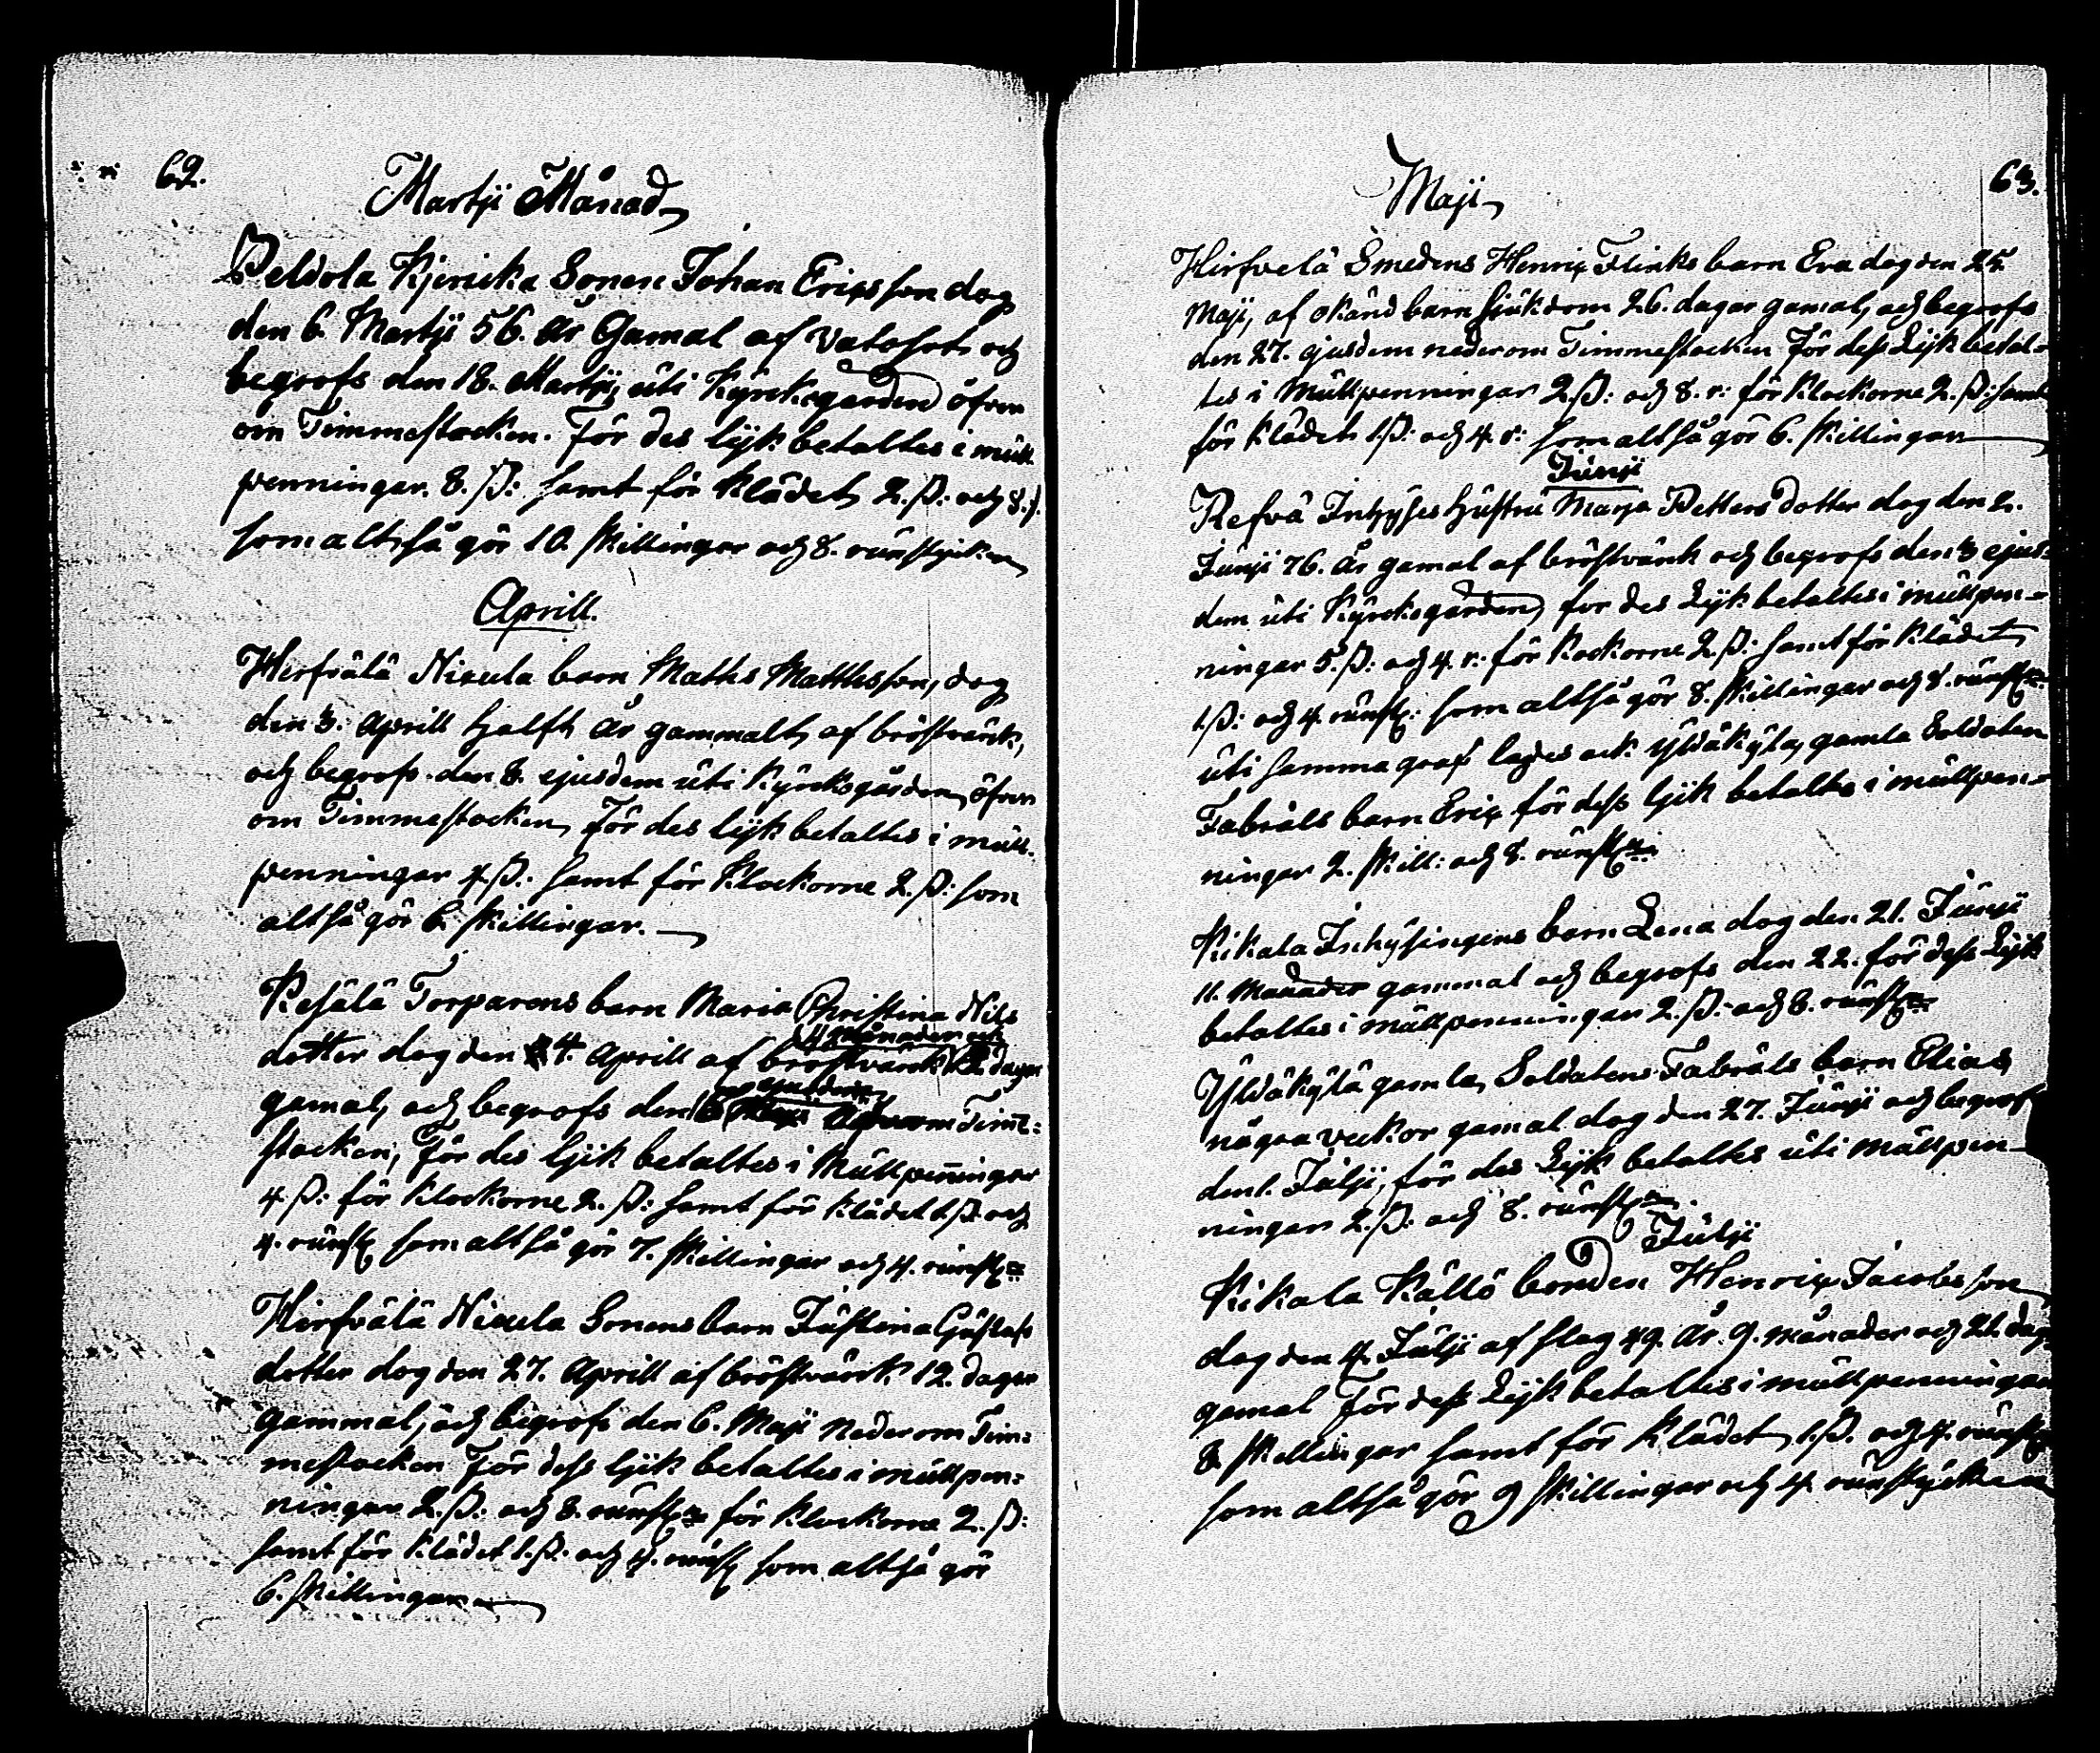 62.
Martji Månad
Peldola Kjericka Sonen Johan Ericsson dog
den 6. Martji 56. år Gamal af Vatosot och
begrofs den 18. Martji, uti Kyrckogården öfven
om Timmestocken. För des lijk betaltes i mull
penningar. 8. ß: samt för klädet 2. ß: och 8.
som altså gör 10. skillingar och 8. runstycken
Aprill.
Herfvälä Nicula barn Maths Mattlesson, dog
den 3. Aprill halft år gammalt af bröstvärck,
och begrofs den 8. ejusdem uti Kyrckogården, öfven
om Timmestocken, För des lijk betaltes i mull.
penningar 4. ß. samt för Klockorne 2. ß: som
altså gör 6. skillingar.
Kesälä Torparens barn Maria Christina Nils
11 månader och
dotter dog den 4. Aprill af bröstvärck dagar
ejusdem
gamal, och begrofs den om Timē:
stocken, För des lijk betaltes i Mullpeñingar
4. ß: för Klockorne 2. ß: samt för klädet 1. ß. och
4. runst som altså gör 7. skillingar och 4. runst
Hirfvälä Nicula Sonens barn Justina Gustafs
dotter dog den 27. Aprill af bröstvärck 12. dagar
gammal, och begrofs den 6. Maji neder om Tim:
mestocken För dess lijk betaltes i mullpen:
ningar 2. ß: och 8. runst för klockorne 2. ß:
samt för klädet 1. ß. och 4. runst som altså gör
6. skillingar
63.
Maji
Hirfvelä Smedens Henric Flinks barn Eva dog den 25.
Maji, af okänd barn sjukdom 26. dagar gamal, och begrofs
den 27. ejusdem neder om Timmestocken För dess Lijk betal=
tes i Mullpenningar 2. ß: och 8. r: för Klockorne 2. ß: samt
för klädet 1. ß: och 4. r: som altså gör 6. skillingar
Junji
Refvä Inhyses hustru Marja Petters dotter dog den 2.
Junji 76. år gamal af bröstvärck och begrofs den 3 ejus:
dem uti Kyrckogården, för des Lijk betaltes i mullpen=
ningar 5. ß: och 4. r: för klockorne 2. ß: samt för klädet
1. ß: och 4. runst: som altså gör 8. skillingar och 8. runst
uti samma graf lades ock Yldäkylä, gamla Soldaten
Fabräls barn Eric för dess lijk betaltes i mullpen=
ningar 2. skill: och 8. runst
Kikala Inhysingens barn Lena dog den 21. Junji
11. Månader gammal och begrofs den 22. för dess Lijk
betaltes i mullpenningar 2. ß: och 8. runst
Yldäkylä gamla, Soldatens Fabräls barn Elias,
några veckor gamal dog den 27. Junji och begrofs
den 1. Julji, för des Lijk betaltes uti mullpen=
ningar 2. ß: och 8. runst
Julji
Kikala Källö bonden Henric Jacobsson
dog den 4. Julji af slag 49. år. 9. månader och 21. dag
gamal För dess Lijk betaltes i mullpenningar
8 skillingar samt för Klädet 1. ß. och 4. runst
som altså gör 9 skillingar och 4. runstycken